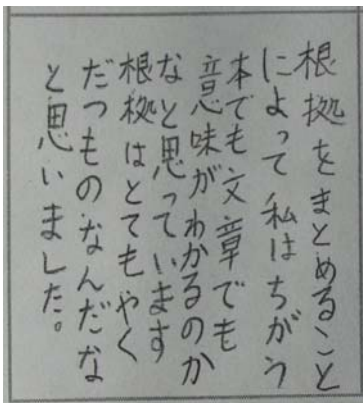 根拠をまとめること
によって私はちがう
本でも文章でも
意味がわかるのか
なと思っています
根拠はとてもやく
だつものなんだな
と思いました。